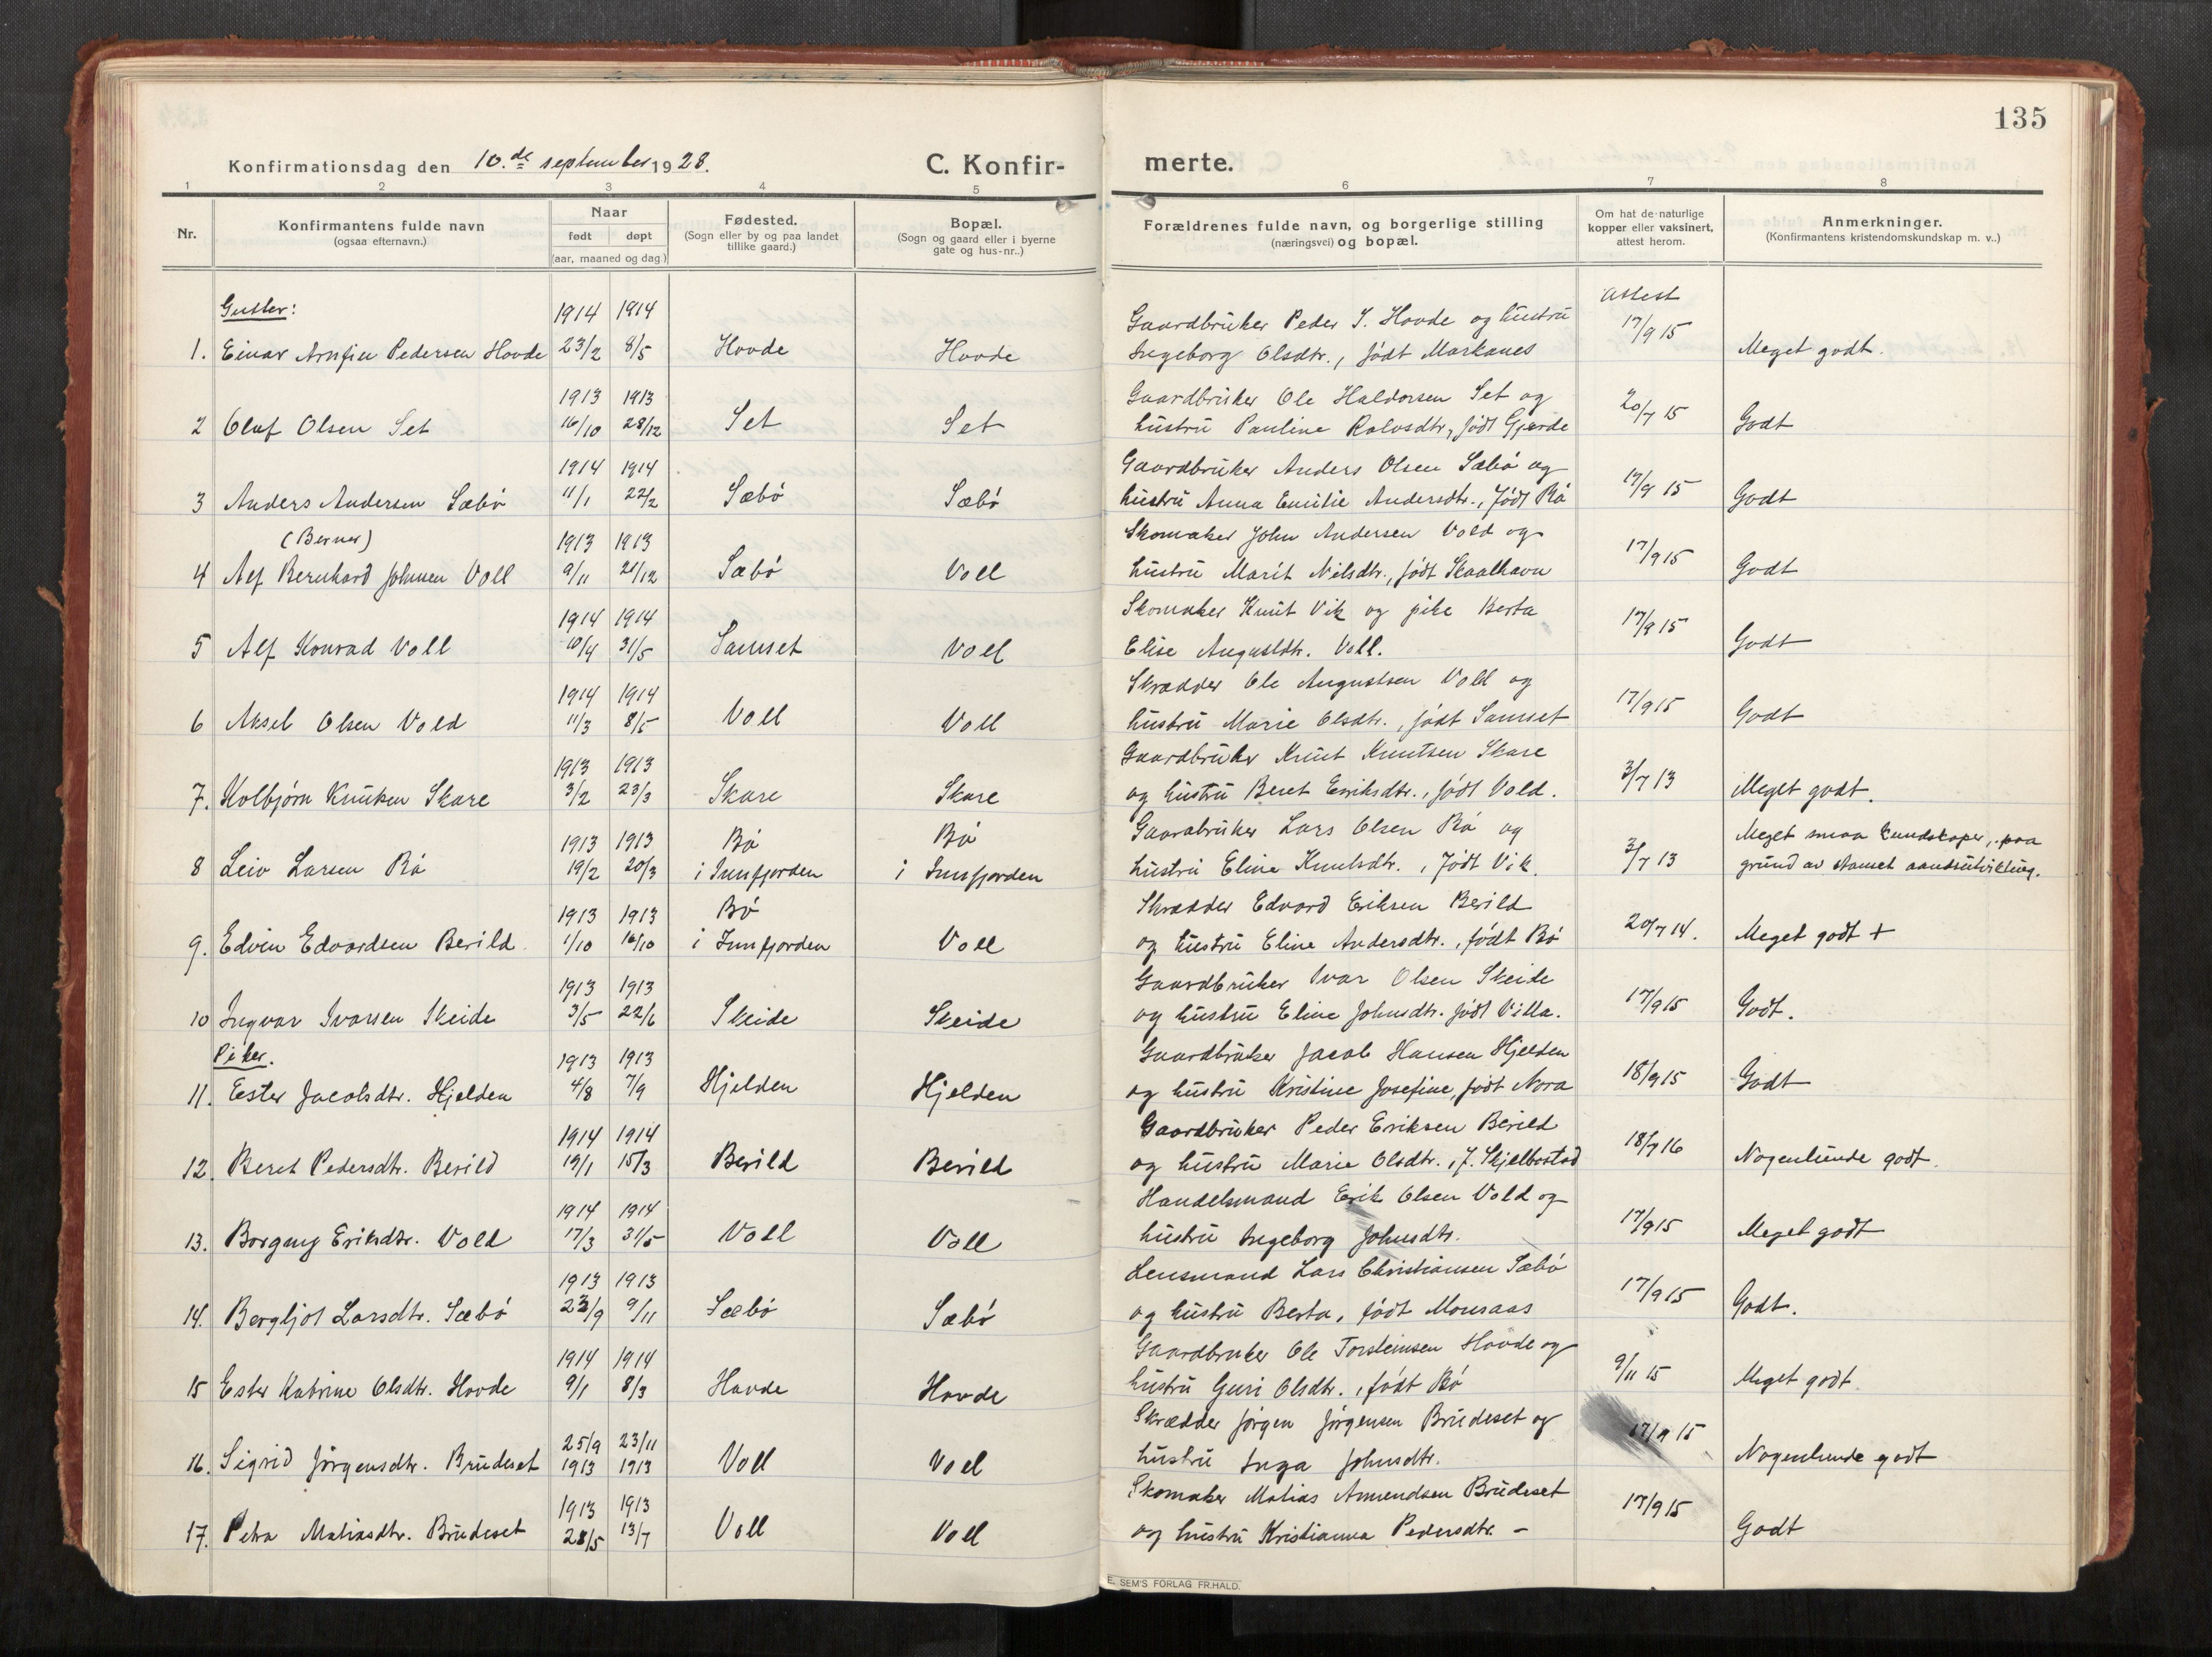 135
Konfirmationsdag den 10.de september 1928.
C. Konfir-
merte.
1 2 3 4 5 6 7 8
Nr.
Konfirmantens fulde navn
(ogsaa efternavn.)
Naar
født døpt
(aar, maaned og dag)
Fødested.
(Sogn eller by og paa landet
tillike gaard.)
Bopæl.
(Sogn og gaard eller i byerne
gate og hus-nr..)
Forældrenes fulde navn, og borgerlige stilling
(næringsvei) og bopæl.
Om hat de naturlige
kopper eller vaksinert,
attest herom.
Anmerkninger.
(Konfirmantens kristendomskundskap m. v..)
Gutter: 1914 1914 Gaardbruker Peder I. Hovde og hustru attest
1. Einar Arnfin Pedersen Hovde 23/2 8/5 Hovde Hovde Ingeborg Olsdtr., født Markanes 17/9 15 Meget godt.
1913 1913 Gaardbruker Ole Haldorsen Set og
2 Oluf Olsen Set 16/10 28/12 Set Set hustru Pauline Rolvsdtr, født Gjerde 20/7 15 Godt
1914 1914 Gaardbruker Anders Olsen Sæbø og
3 Anders Andersen Sæbø 11/1 22/2 Sæbø Sæbø hustru Anna Emilie Andersdtr., født Bø 17/9 15 Godt
(Berner) 1913 1913 Skomaker John Andersen Vold og
4 Alf Bernhard Johnsen Voll 9/11 21/12 Sæbø Voll hustru Marit Nilsdtr., født Skaalhavn 17/9 15 Godt
1914 1914 Skomaker Knut Vik og pike Berta
5 Alf Konrad Voll 10/4 31/5 Samset Voll Elise Augustdtr. Voll. 17/9 15 Godt
1914 1914 Skrædder Ole Augustsen Vold og
6 Aksel Olsen Vold 11/3 8/5 Voll Voll hustru Marie Olsdtr., født Samset 17/9 15 Godt
1913 1913 Gaardbruker Knut Knutsen Skare
7. Kolbjørn Knutsen Skare 3/2 23/3 Skare Skare og hustru Beret Eriksdtr., født Vold. 3/7 13 Meget godt.
1913 1913 Bø Bø Gaardbruker Lars Olsen Bø og Meget smaa kundskaper, paa
8 Leiv Larsen Bø 19/2 20/3 i Innfjorden i Innfjorden hustru Eline Knutsdtr., født Vik. 3/7 13 grund av aandsutvikling.
1913 1913 Bø Skrædder Edvard Eriksen Berild
9. Edvin Edvardsen Berild 1/10 16/10 i Innfjorden Voll og hustru Eline Andersdtr., født Bø 20/7 14. Meget godt +
1913 1913 Gaardbruker Ivar Olsen Skeide
10 Ingvar Ivarsen Skeide 3/5 22/6 Skeide Skeide og hustru Eline Johnsdtr. født Villa. 17/9 15 Godt.
Piker. 1913 1913 Gaardbruker Jacob Hansen Hjelden
11. Ester Jacobsdtr. Hjelden 4/8 7/9 Hjelden Hjelden og hustru Kristine Josefine, født Nora 18/9 15 Godt
1914 1914 Gaardbruker Peder Eriksen Berild
12. Beret Pedersdtr. Berild 19/1 15/3 Berild Berild og hustru Marie Olsdtr., f. Skjelbostad 18/7 16 Nogenlunde godt.
1914 1914 Handelsmand Erik Olsen Vold og
13. Borgny Eriksdtr. Vold 17/3 31/5 Voll Voll hustru Ingeborg Johnsdtr. 17/9 15 Meget godt
1913 1913 Lensmand Lars Christiansen Sæbø
14. Bergljot Larsdtr. Sæbø 23/9 9/11 Sæbø Sæbø og hustru Berta, født Monsaas 17/9 15 Godt.
1914 1914 Gaardbruker Ole Torsteinsen Hovde og
15 Ester Katrine Olsdtr. Hovde 9/1 8/3 Hovde Hovde hustru Guri Olsdtr., født Bø 9/11 15 Meget godt.
25/9 23/11 Skrædder Jørgen Jørgensen Brudeset og
16. Sigrid Jørgensdtr. Brudeset 1913 1913 Voll Voll hustru Inga Johnsdtr. 17/9 15 Nogenlunde godt
1913 1913 Skomaker Matias Amundsen Brudeset
17. Petra Matiasdtr. Brudeset 28/5 13/7 Voll Voll og hustru Kristianna Pedersdtr. - 17/9 15 Godt
E. SEM'S FORLAG FR.HALD.